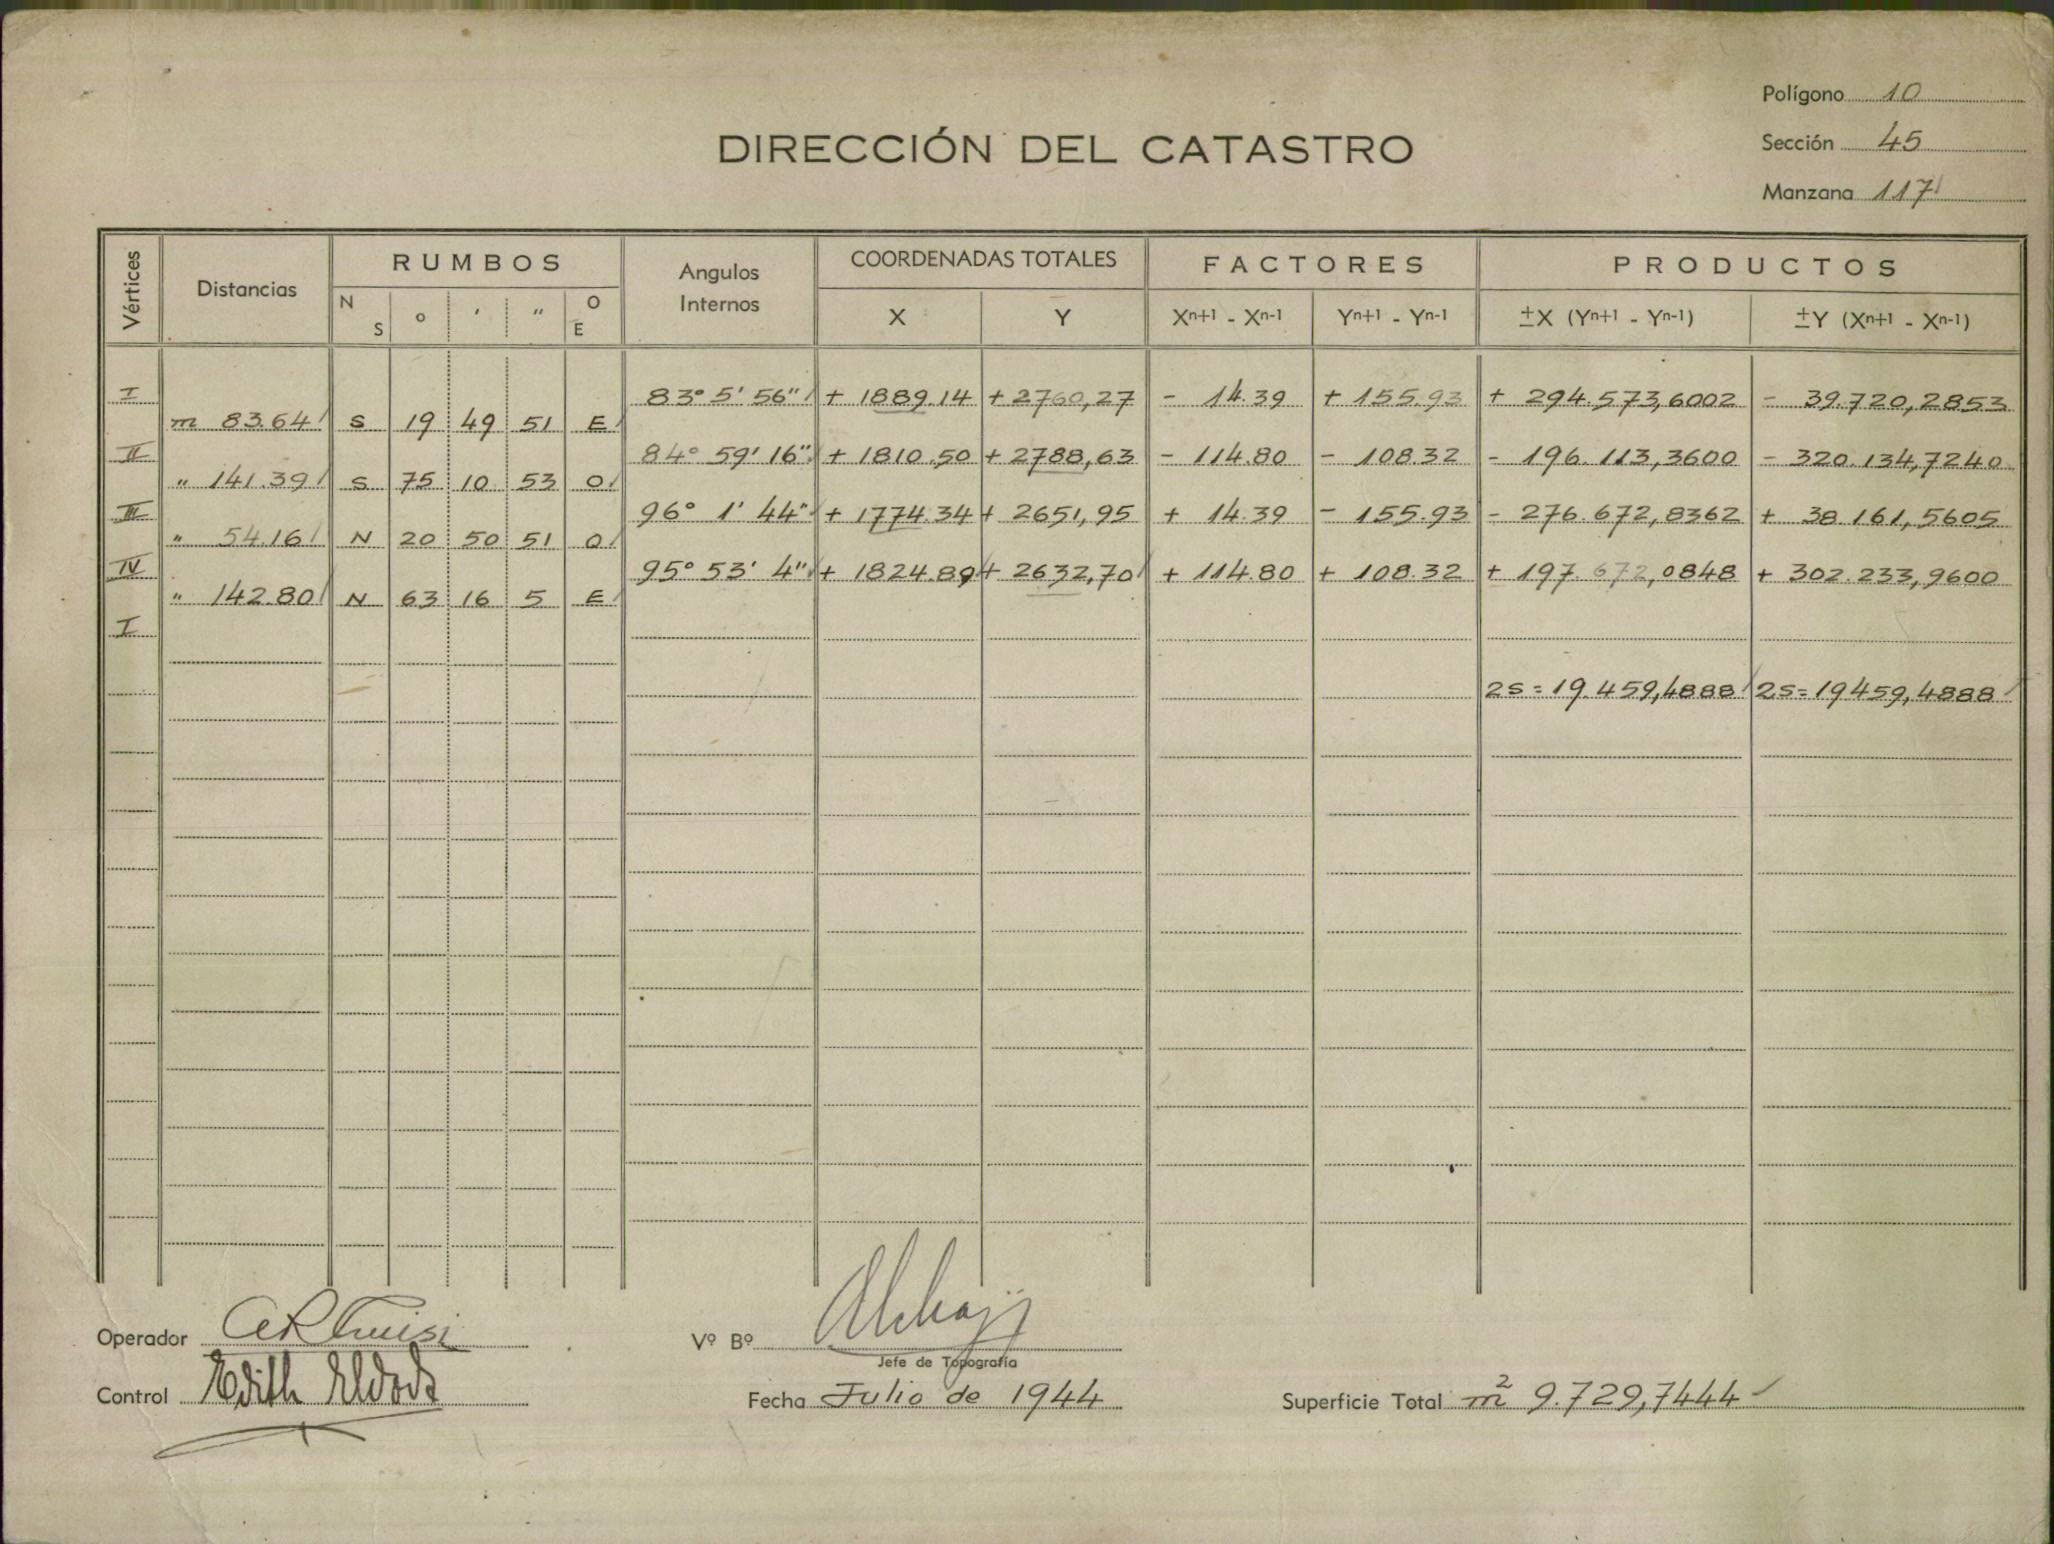 Polígono 10
DIRECCIÓN DEL CATASTRO
Sección 45
Manzana 117
Vértices Distancias RUMBOS Angulos Internos COORDENADAS TOTALES FACTORES PRODUCTOS
N S o ' " O E X Y Xn+1 - Xn-1 Yn+1 - Yn-1 ±X (Yn+1 - Yn-1) ±Y (Xn+1 - Xn-1)
I 83° 5' 56" + 1889.14 + 2760,27 - 14.39 + 155.93 + 294.573,6002 - 39.720,2853
m 83.64 S 19 49 51 E
II 84° 59' 16" + 1810.50 + 2788,63 - 114.80 - 108.32 - 196.113,3600 - 320.134,7240
" 141.39 S 75 10 53 O
III 96° 1' 44" + 1774.34 + 2651,95 + 14.39 - 155.93 - 276.672,8362 + 38.161,5605
" 54.16 N 20 50 51 O
IV 95° 53' 4" + 1824.89 + 2632,70 + 114.80 + 108.32 + 197.672,0848 + 302.233,9600
" 142.80 N 63 16 5 E
I
2s = 19.459,4888 2s = 19459,4888
Operador
Vº Bº
Jefe de Topografía
Control Edith
Fecha Julio de 1944
Superficie Total m² 9.729,7444